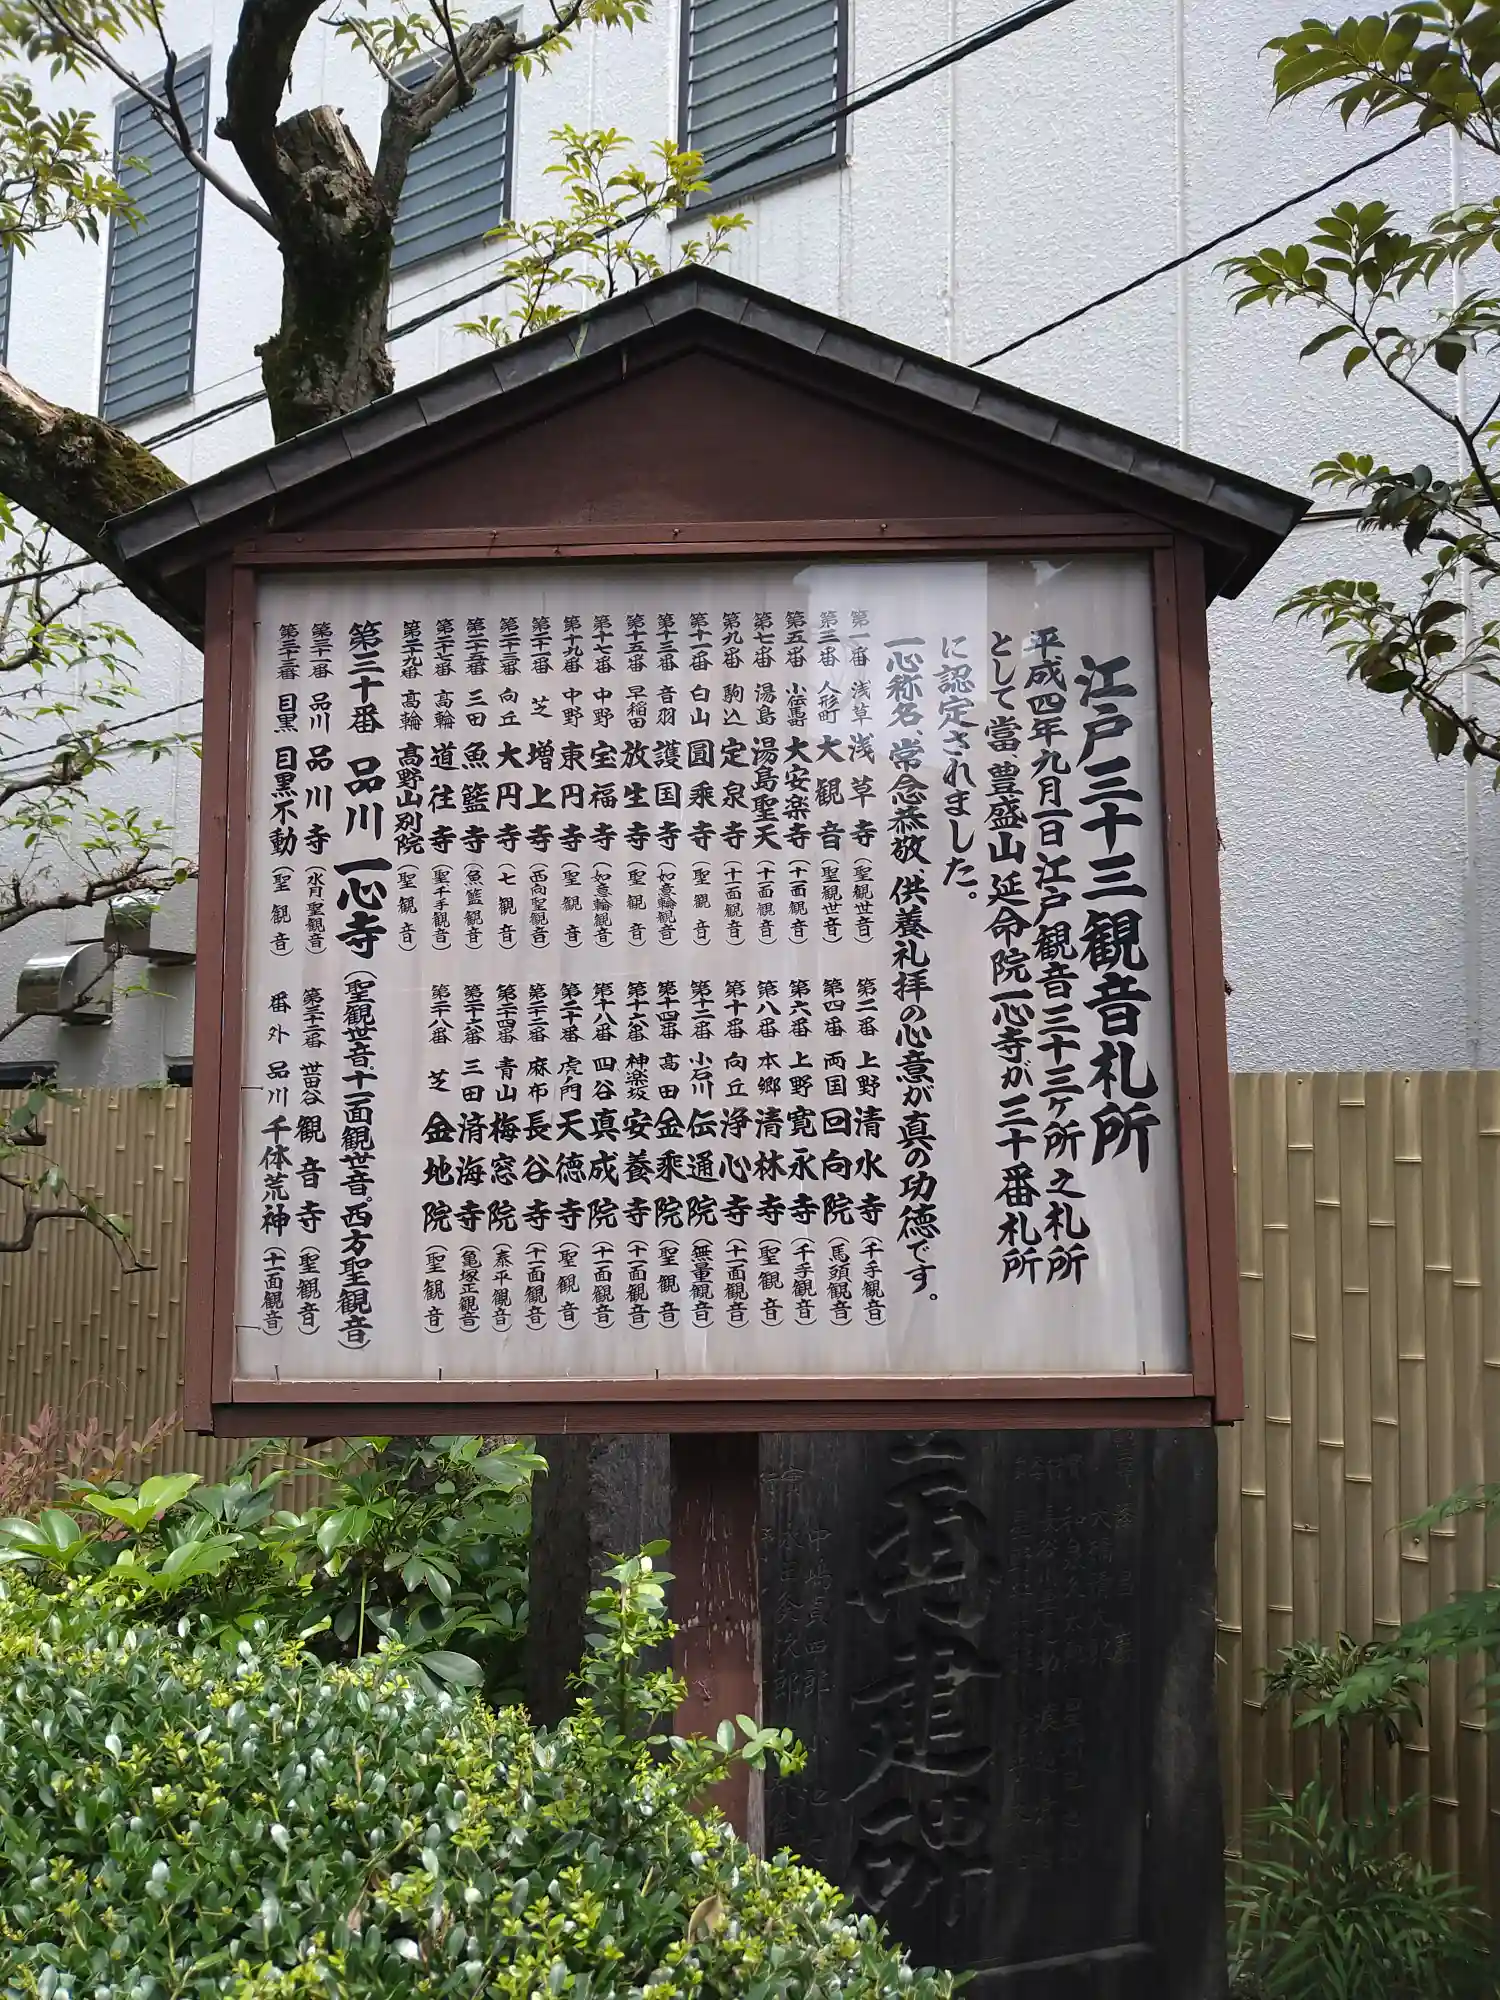 江戸三十三観音札所
平成四年九月一日江戸観音三十三ヶ所之札所
として當、豊盛山延命院一心寺が三十番札所
に認定されました。
一心称名、常念恭敬、供養礼拝の心意が真の功徳です。
第一番 浅草 浅草寺（聖観世音）
第二番 上野 清水寺（千手観音）
第三番 人形町 大観音（聖観世音）
第四番 両国 回向院（馬頭観音）
第五番 小伝馬町 大安楽寺（十一面観音）
第六番 上野 寛永寺（千手観音）
第七番 湯島 湯島聖天（十一面観音）
第八番 本郷 清林寺（聖観音）
第九番 駒込 定泉寺（十一面観音）
第十番 向丘 浄心寺（十一面観音）
第十一番 白山 圓乗寺（聖観音）
第十二番 小石川 伝通院（無量観音）
第十三番 音羽 護国寺（如意輪観音）
第十四番 高田 金乗院（聖観音）
第十五番 早稲田 放生寺（聖観音）
第十六番 神楽坂 安養寺（十一面観音）
第十七番 中野 宝福寺（如意輪観音）
第十八番 四谷 真成院（十一面観音）
第十九番 中野 東円寺（聖観音）
第二十番 虎ノ門 天徳寺（聖観音）
第二十一番 芝 増上寺（西向聖観音）
第二十二番 麻布 長谷寺（十一面観音）
第二十三番 向丘 大円寺（七観音）
第二十四番 青山 梅窓院（泰平観音）
第二十五番 三田 魚籃寺（魚籃観音）
第二十六番 三田 済海寺（亀塚正観音）
第二十七番 高輪 道往寺（聖千手観音）
第二十八番 芝 金地院（聖観音）
第二十九番 高輪 高野山別院（聖観音）
第三十番 品川 一心寺（聖観世音、十一面観世音。西方聖観音）
第三十一番 品川 品川寺（水月聖観音）
第三十二番 世田谷 観音寺（聖観音）
第三十三番 目黒 目黒不動（聖観音）
番外 品川 千体荒神（十一面観音）
再建碑